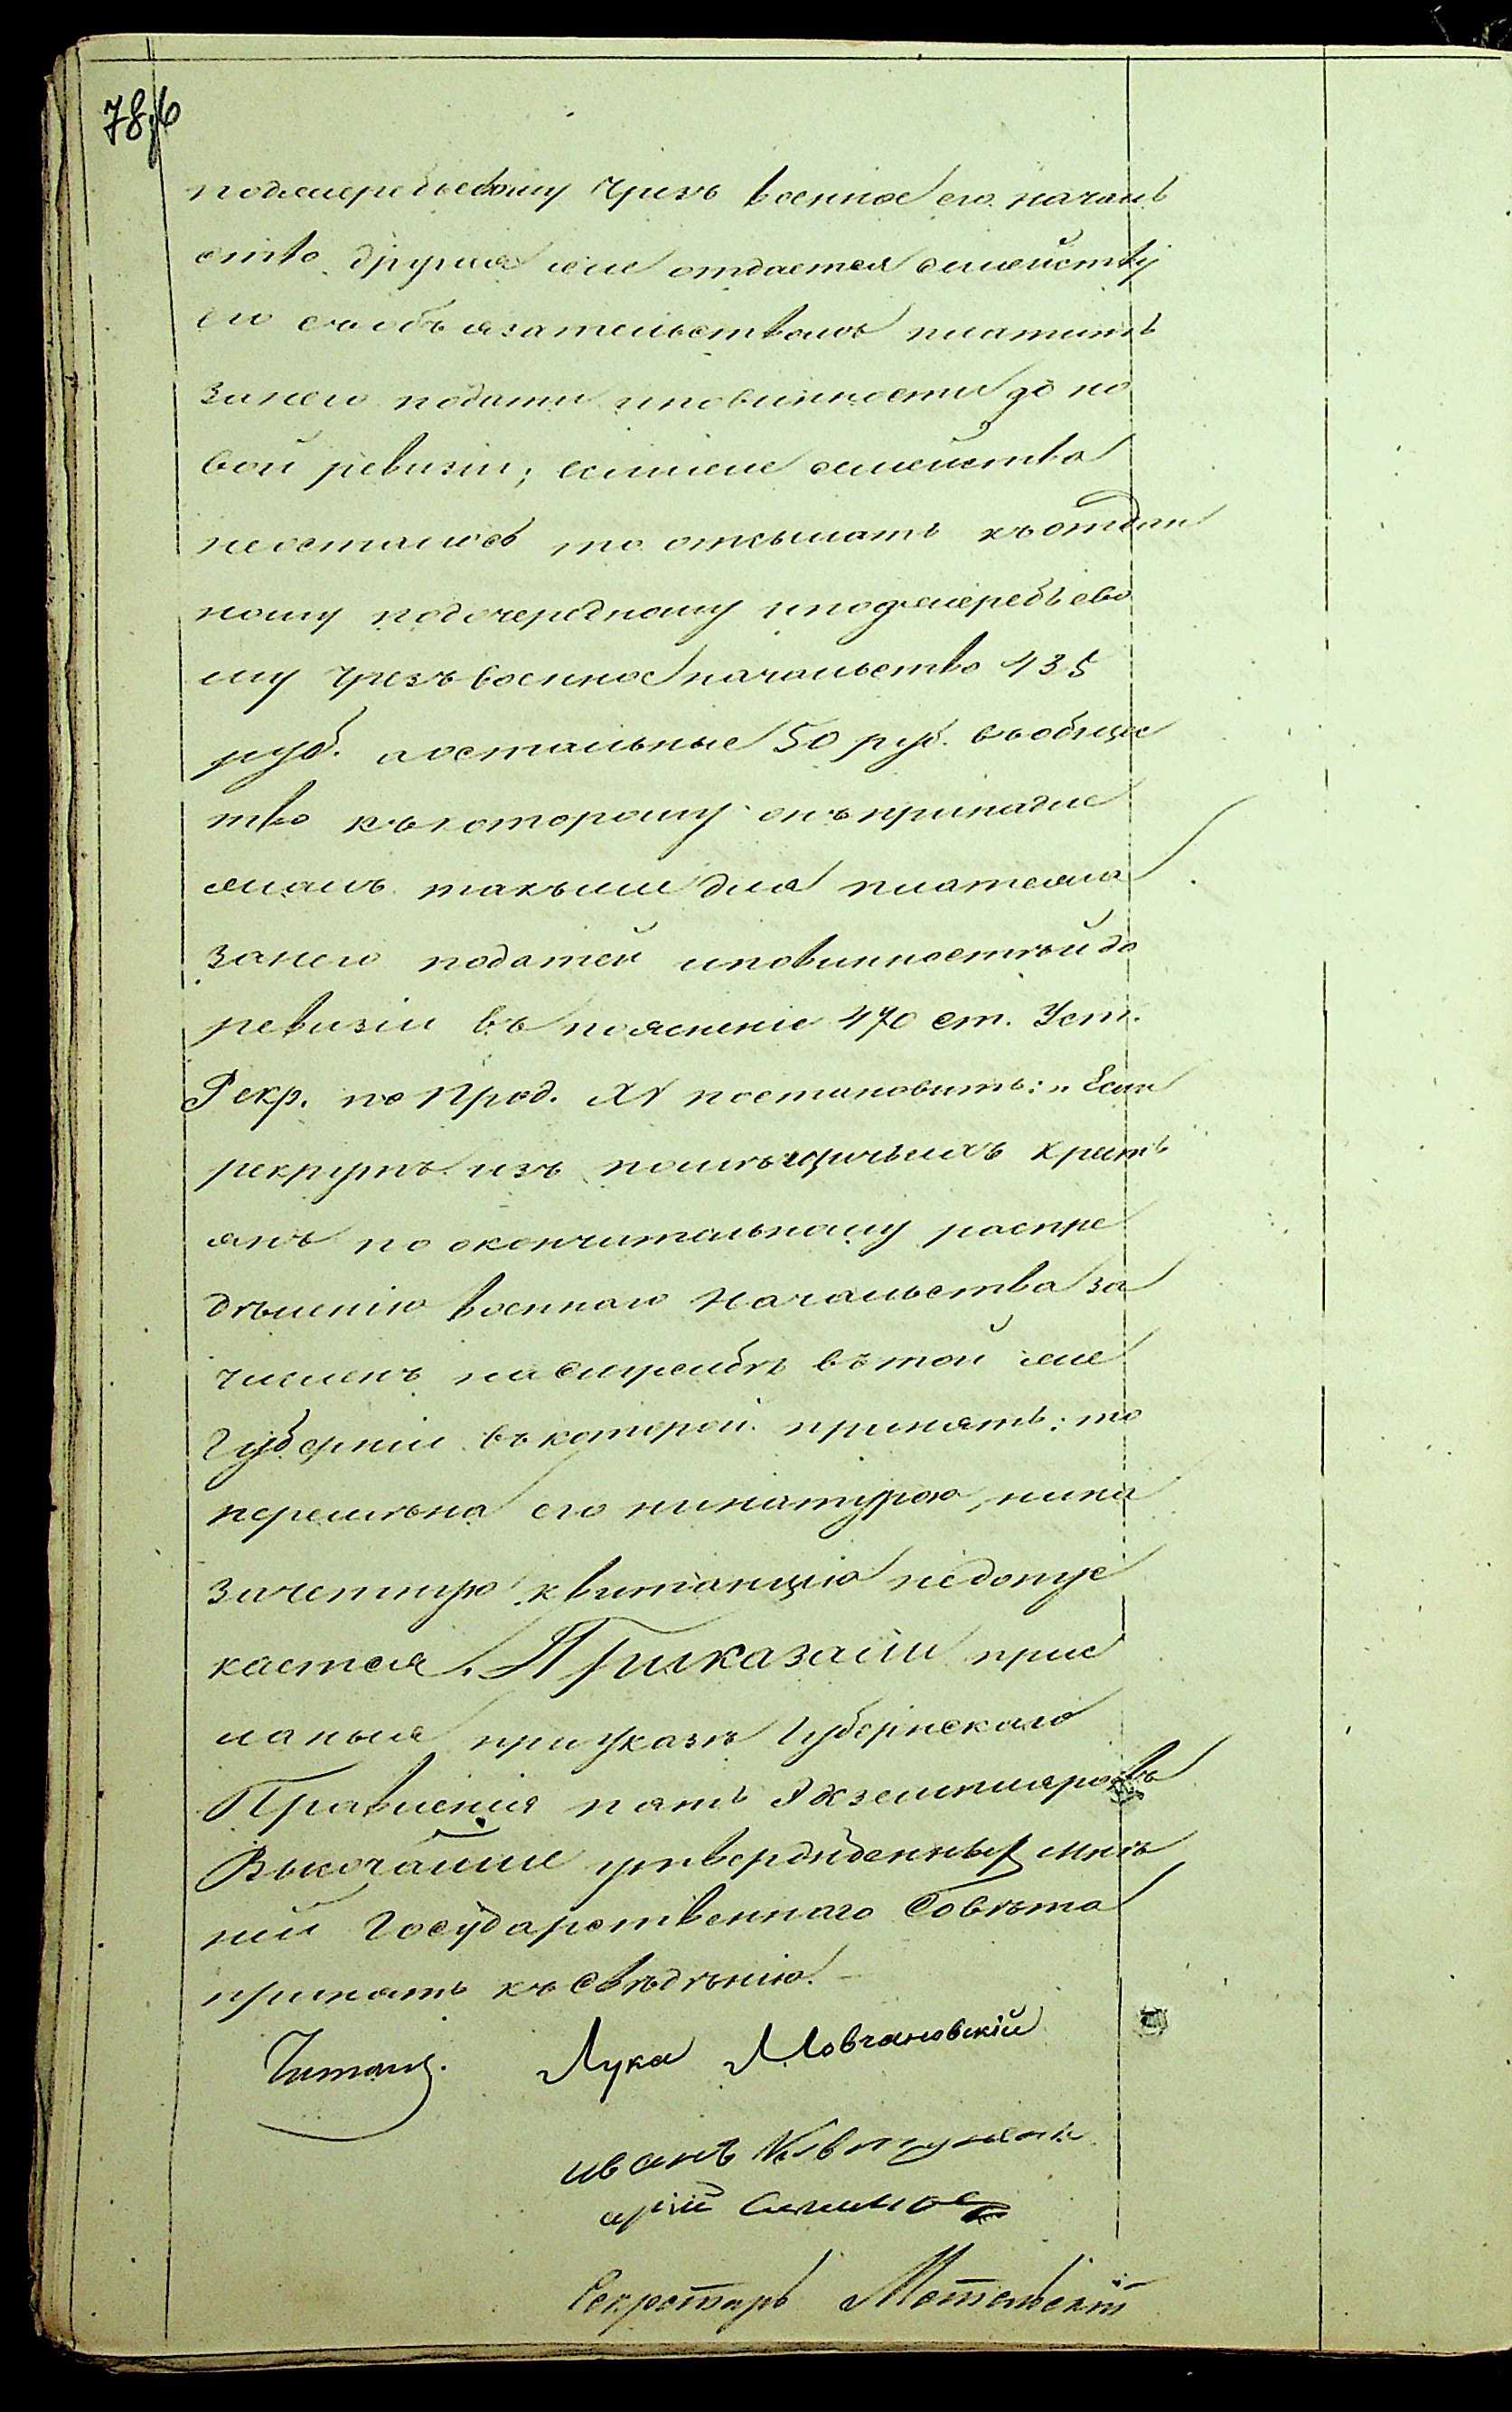 78,б
поджеребьевому чрезъ военное его началь
ство другая же отдается семейству
его съ обязательствомъ платить
за него подати и повинности до но
вой ревизіи; если же семейства
не осталось то отсылать къ отдан
ному подочередному и поджеребьево
му чрезъ военное начальство 435
руб. а остальные 50 руб. въ общес
тво къ которому онъ принадле
жалъ также для платежа
за него податей и повинностей до
ревизіи въ поясненіе 470 ст. Уст.
Рекр. по Прод. XV постановить: „Если
рекрутъ изъ помѣщичьихъ кресть
янъ по окончательному распре
дѣленію военнаго Начальства за
численъ на службу въ той же
Губерніи въ которой принятъ: то
перемѣна его ни натурою, ни на
зачетную квитанцію не допус
кается. Приказали прис
ланыя при указѣ Губернскаго
Правленія пять экземпляровъ
Высочайше утвержденныхъ мнѣ
ній Государственнаго Совѣта
принять къ свѣдѣнію. –
Читалъ. Лука Мовчановскій
иванъ
Секретарь